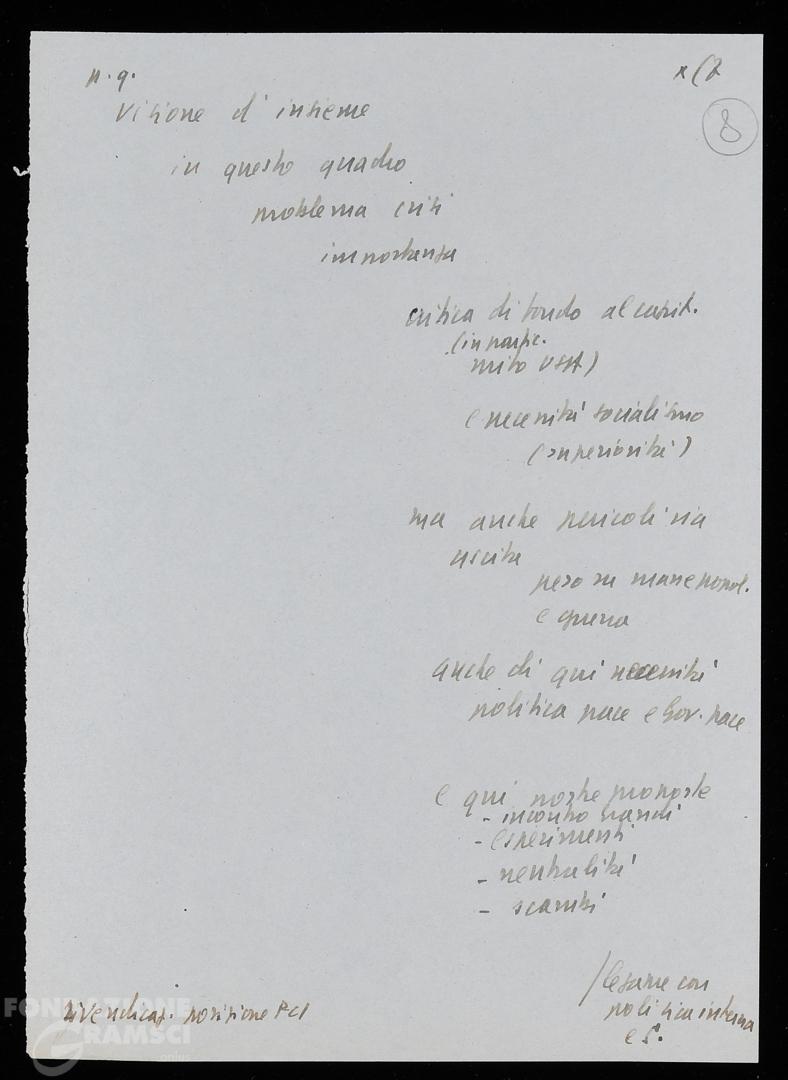 n. 9.
8
Visione d'insieme
in questo quadro
problema crisi
importanza
critica di fondo al capit.
(in partic.
mito USA)
e necessità socialismo
(superiorità)
ma anche pericoli via
uscita
peso su masse popol.
e guerra
anche di qui necessità
politica pace e Gov. pace
e qui nostre proposte
- incontro grandi
- esperimenti
- neutralità
- scambi
legame con
politica interna
e s.
rivendicaz. posizione PCI
FONDAZIONE
GRAMSCI